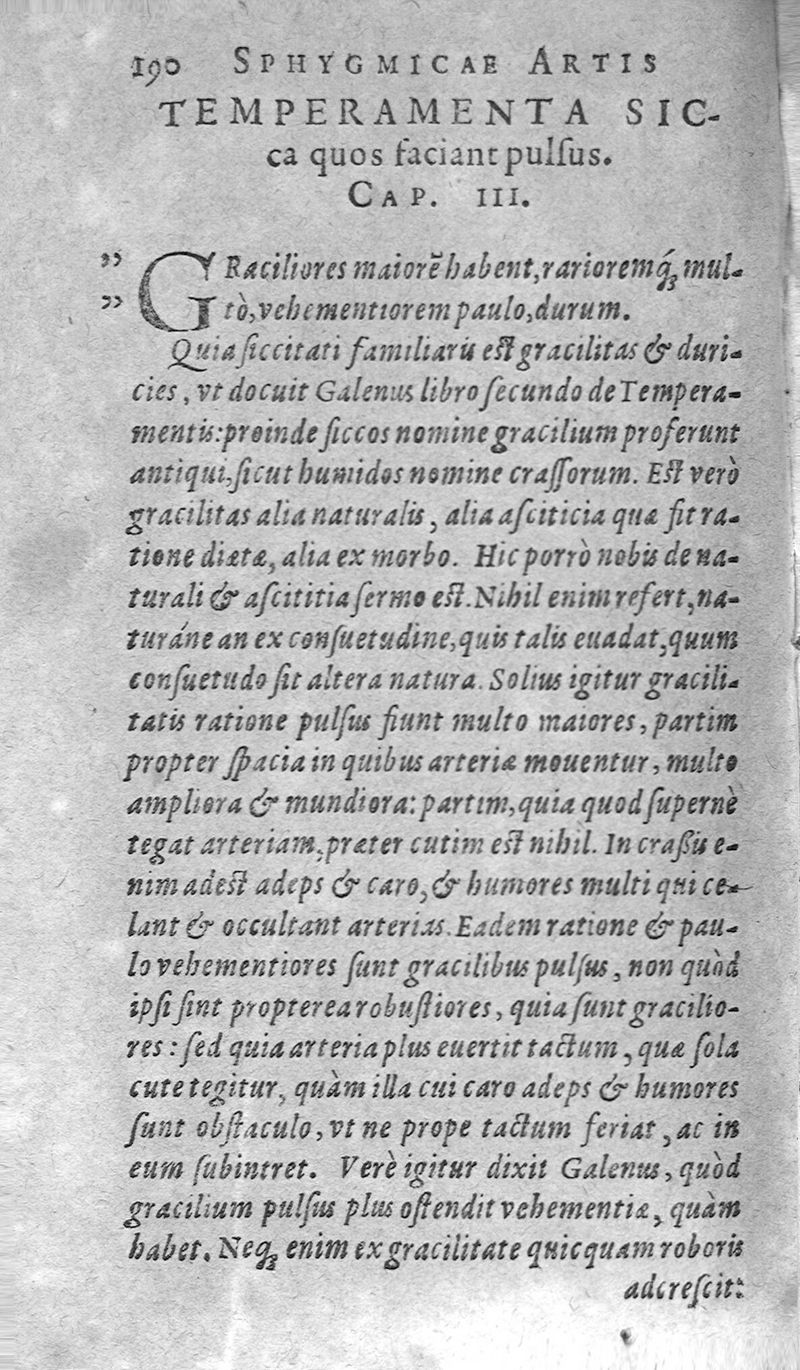 190 SPHYGMICAE ARTIS
TEMPERAMENTA SIC-
ca quos faciant pulſus.
CAP. III.
” GRaciliores maiorē habent, rarioremq́; mul-
” tò, vehementiorem paulo, durum.
Quia ſiccitati familiaris eſt gracilitas & duri-
cies, vt docuit Galenus libro ſecundo de Tempera-
mentis: proinde ſiccos nomine gracilium proferunt
antiqui, ſicut humidos nomine craſſorum. Eſt verò
gracilitas alia naturalis, alia aſciticia quæ fit ra-
tione diætæ, alia ex morbo. Hic porrò nobis de na-
turali & aſcititia ſermo eſt. Nihil enim refert, na-
turáne an ex conſuetudine, quis talis euadat, quum
conſuetudo ſit altera natura. Solius igitur gracili-
tatis ratione pulſus fiunt multo maiores, partim
propter ſpacia in quibus arteriæ mouentur, multo
ampliora & mundiora: partim, quia quod ſupernè
tegat arteriam, præter cutim eſt nihil. In craßis e-
nim adest adeps & caro, & humores multi qui ce-
lant & occultant arterias. Eadem ratione & pau-
lo vehementiores ſunt gracilibus pulſus, non quòd
ipſi ſint propterea robuſtiores, quia ſunt gracilio-
res: ſed quia arteria plus euertit tactum, quæ ſola
cute tegitur, quàm illa cui caro adeps & humores
ſunt obſtaculo, vt ne prope tactum feriat, ac in
eum ſubintret. Verè igitur dixit Galenus, quòd
gracilium pulſus plus oſtendit vehementiæ, quàm
habet. Neq; enim ex gracilitate quicquam roboris
adcreſcit: